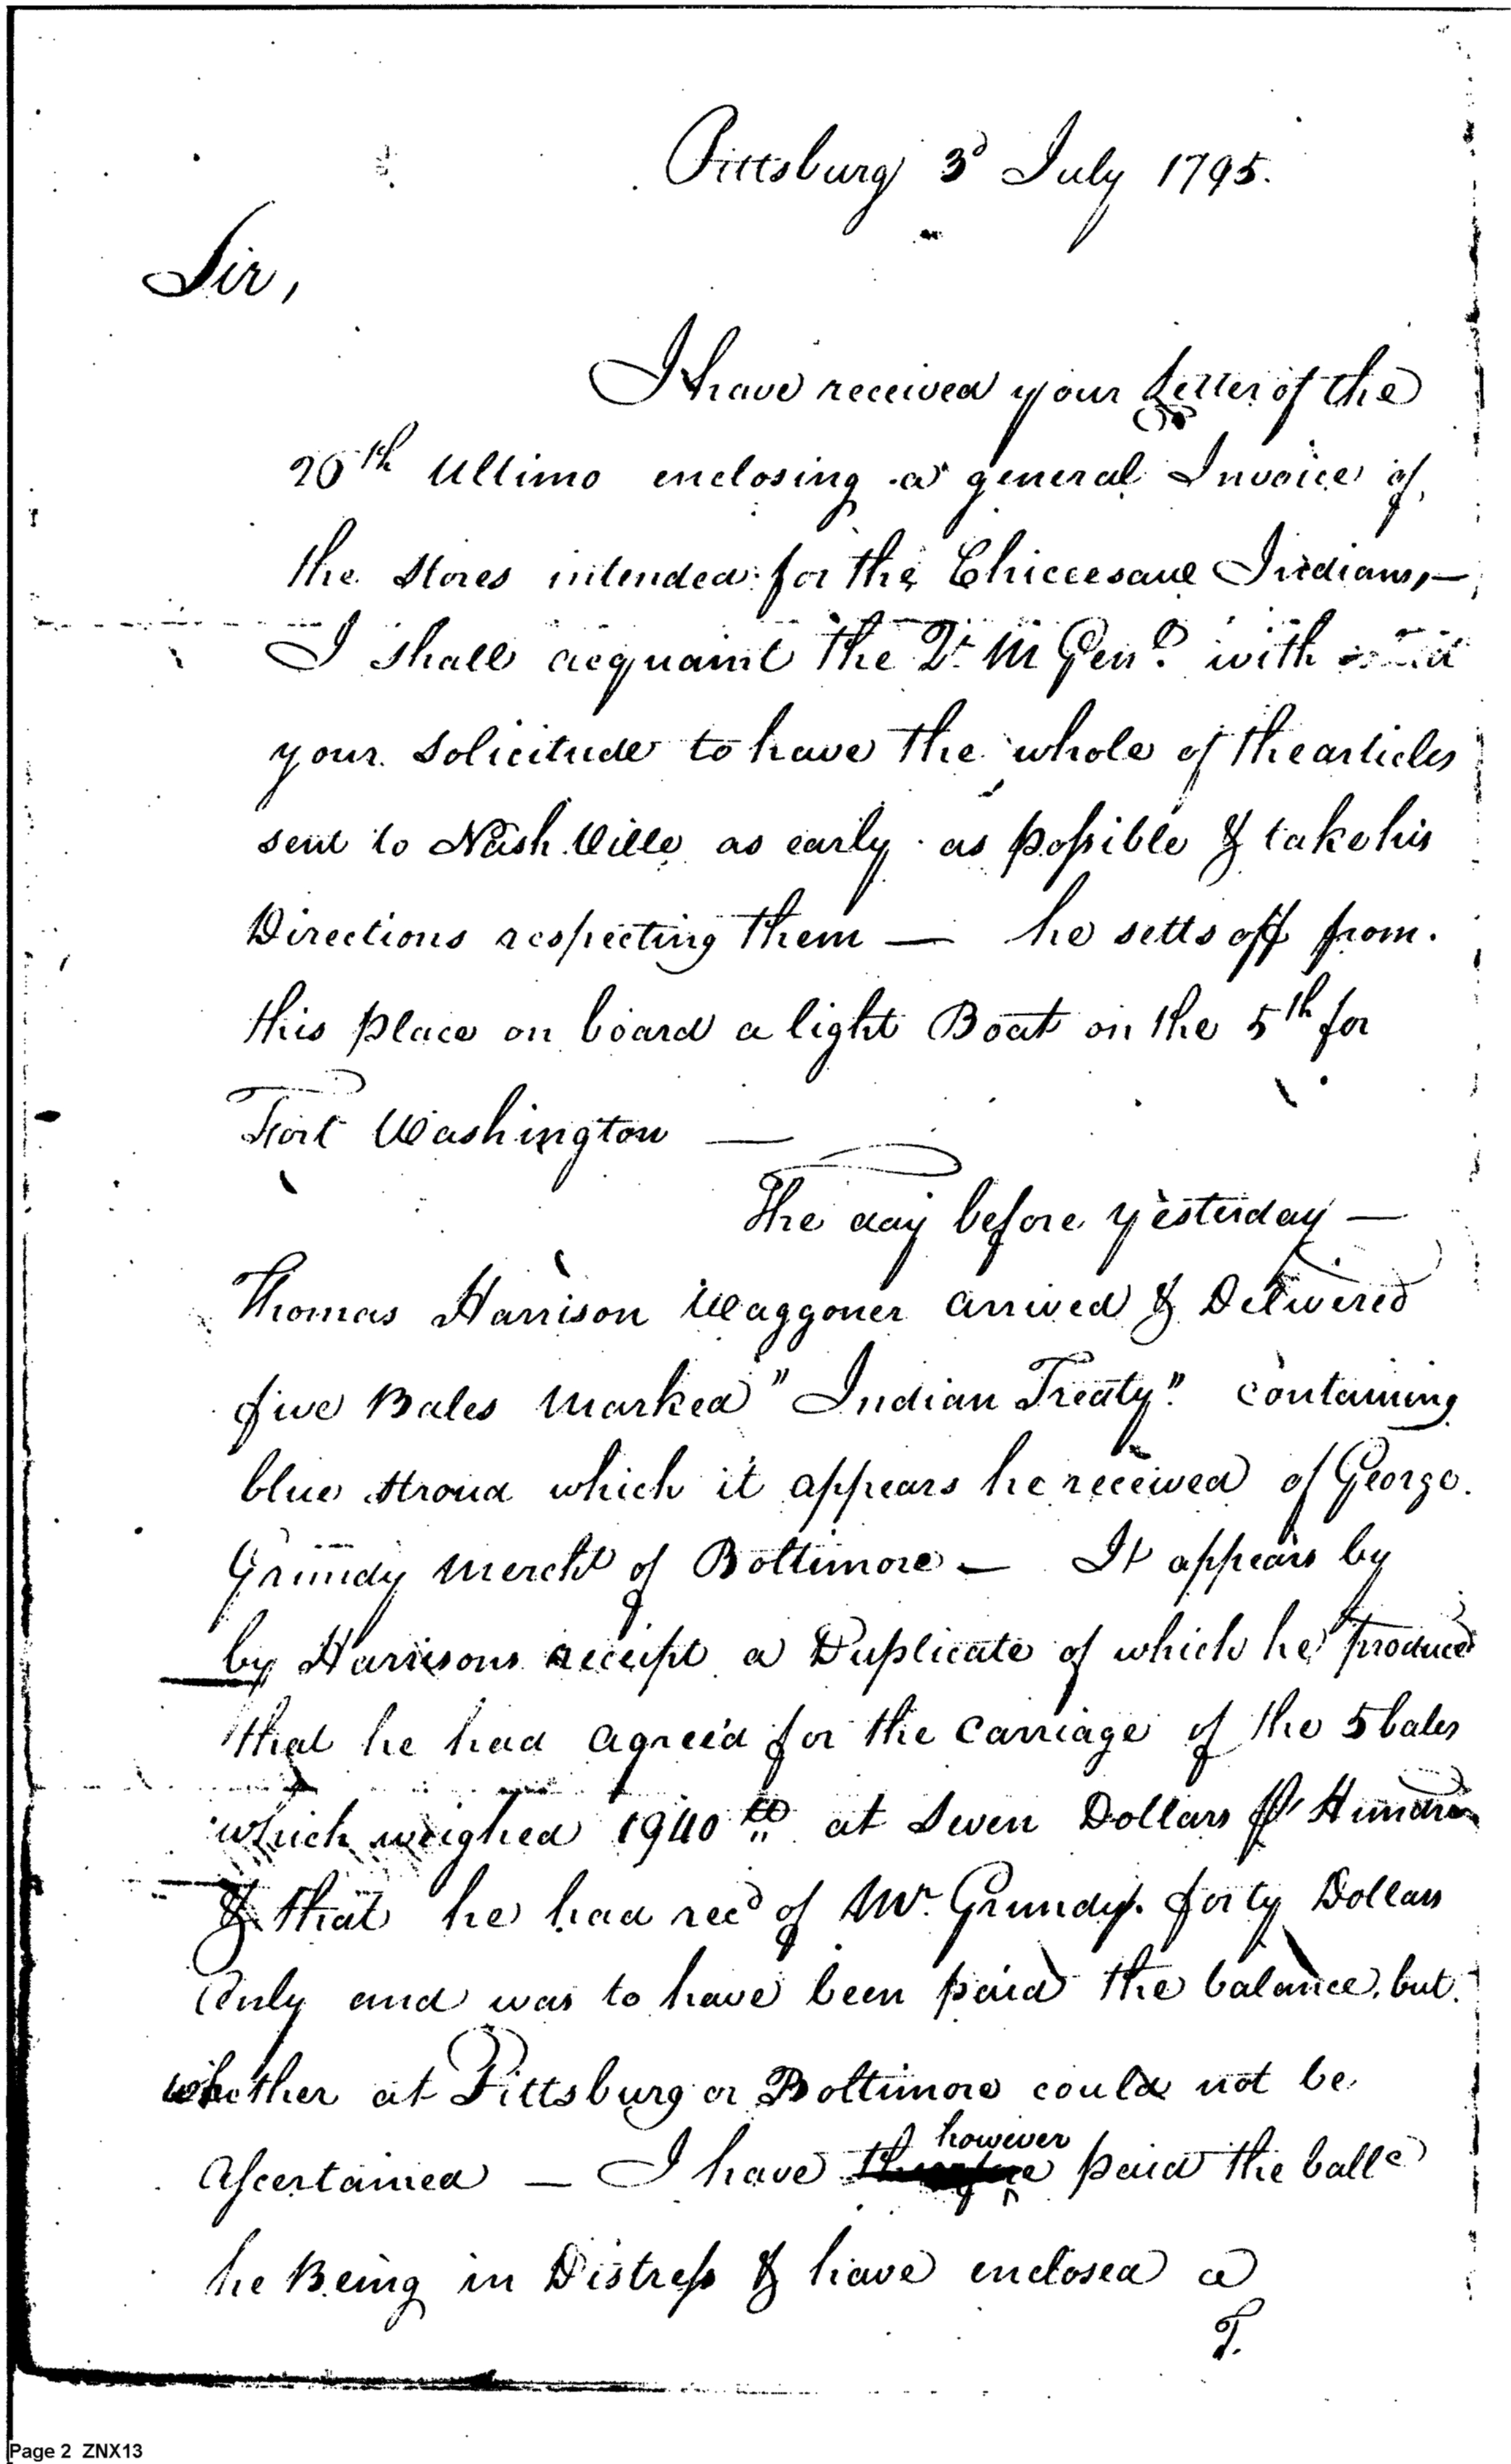 Pittsburg 3d July 1795.
Sir,
I have received your Letter of the
20th Ultimo enclosing a general Invoice of
the Stores intended for the Chiccesawe Indians, —
I shall acquaint the Qr. M Genl. with
your solicitude to have the whole of the articles
sent to Nash Ville as early as possible & take his
Directions respecting them — he setts off from
this place on board a light Boat on the 5th for
Fort Washington —
The day before yesterday —
Thomas Harrison Waggoner arrived & Delivered
five Bales marked "Indian Treaty" containing
blue stroud which it appears he received of George
Grundy Mercht of Boltimore — It appears by
by Harrisons receipt a Duplicate of which he produced
that he had agreed for the carriage of the 5 bales
which weighed 1940 lb at Seven Dollars Pr Hundred
& that he had recd of Mr. Grundy forty Dollars
Only and was to have been paid the balance, but
whether at Pittsburg or Boltimore could not be
Ascertained — I have however paid the balle
he Being in Distress & have enclosed a
Page 2 ZNX13